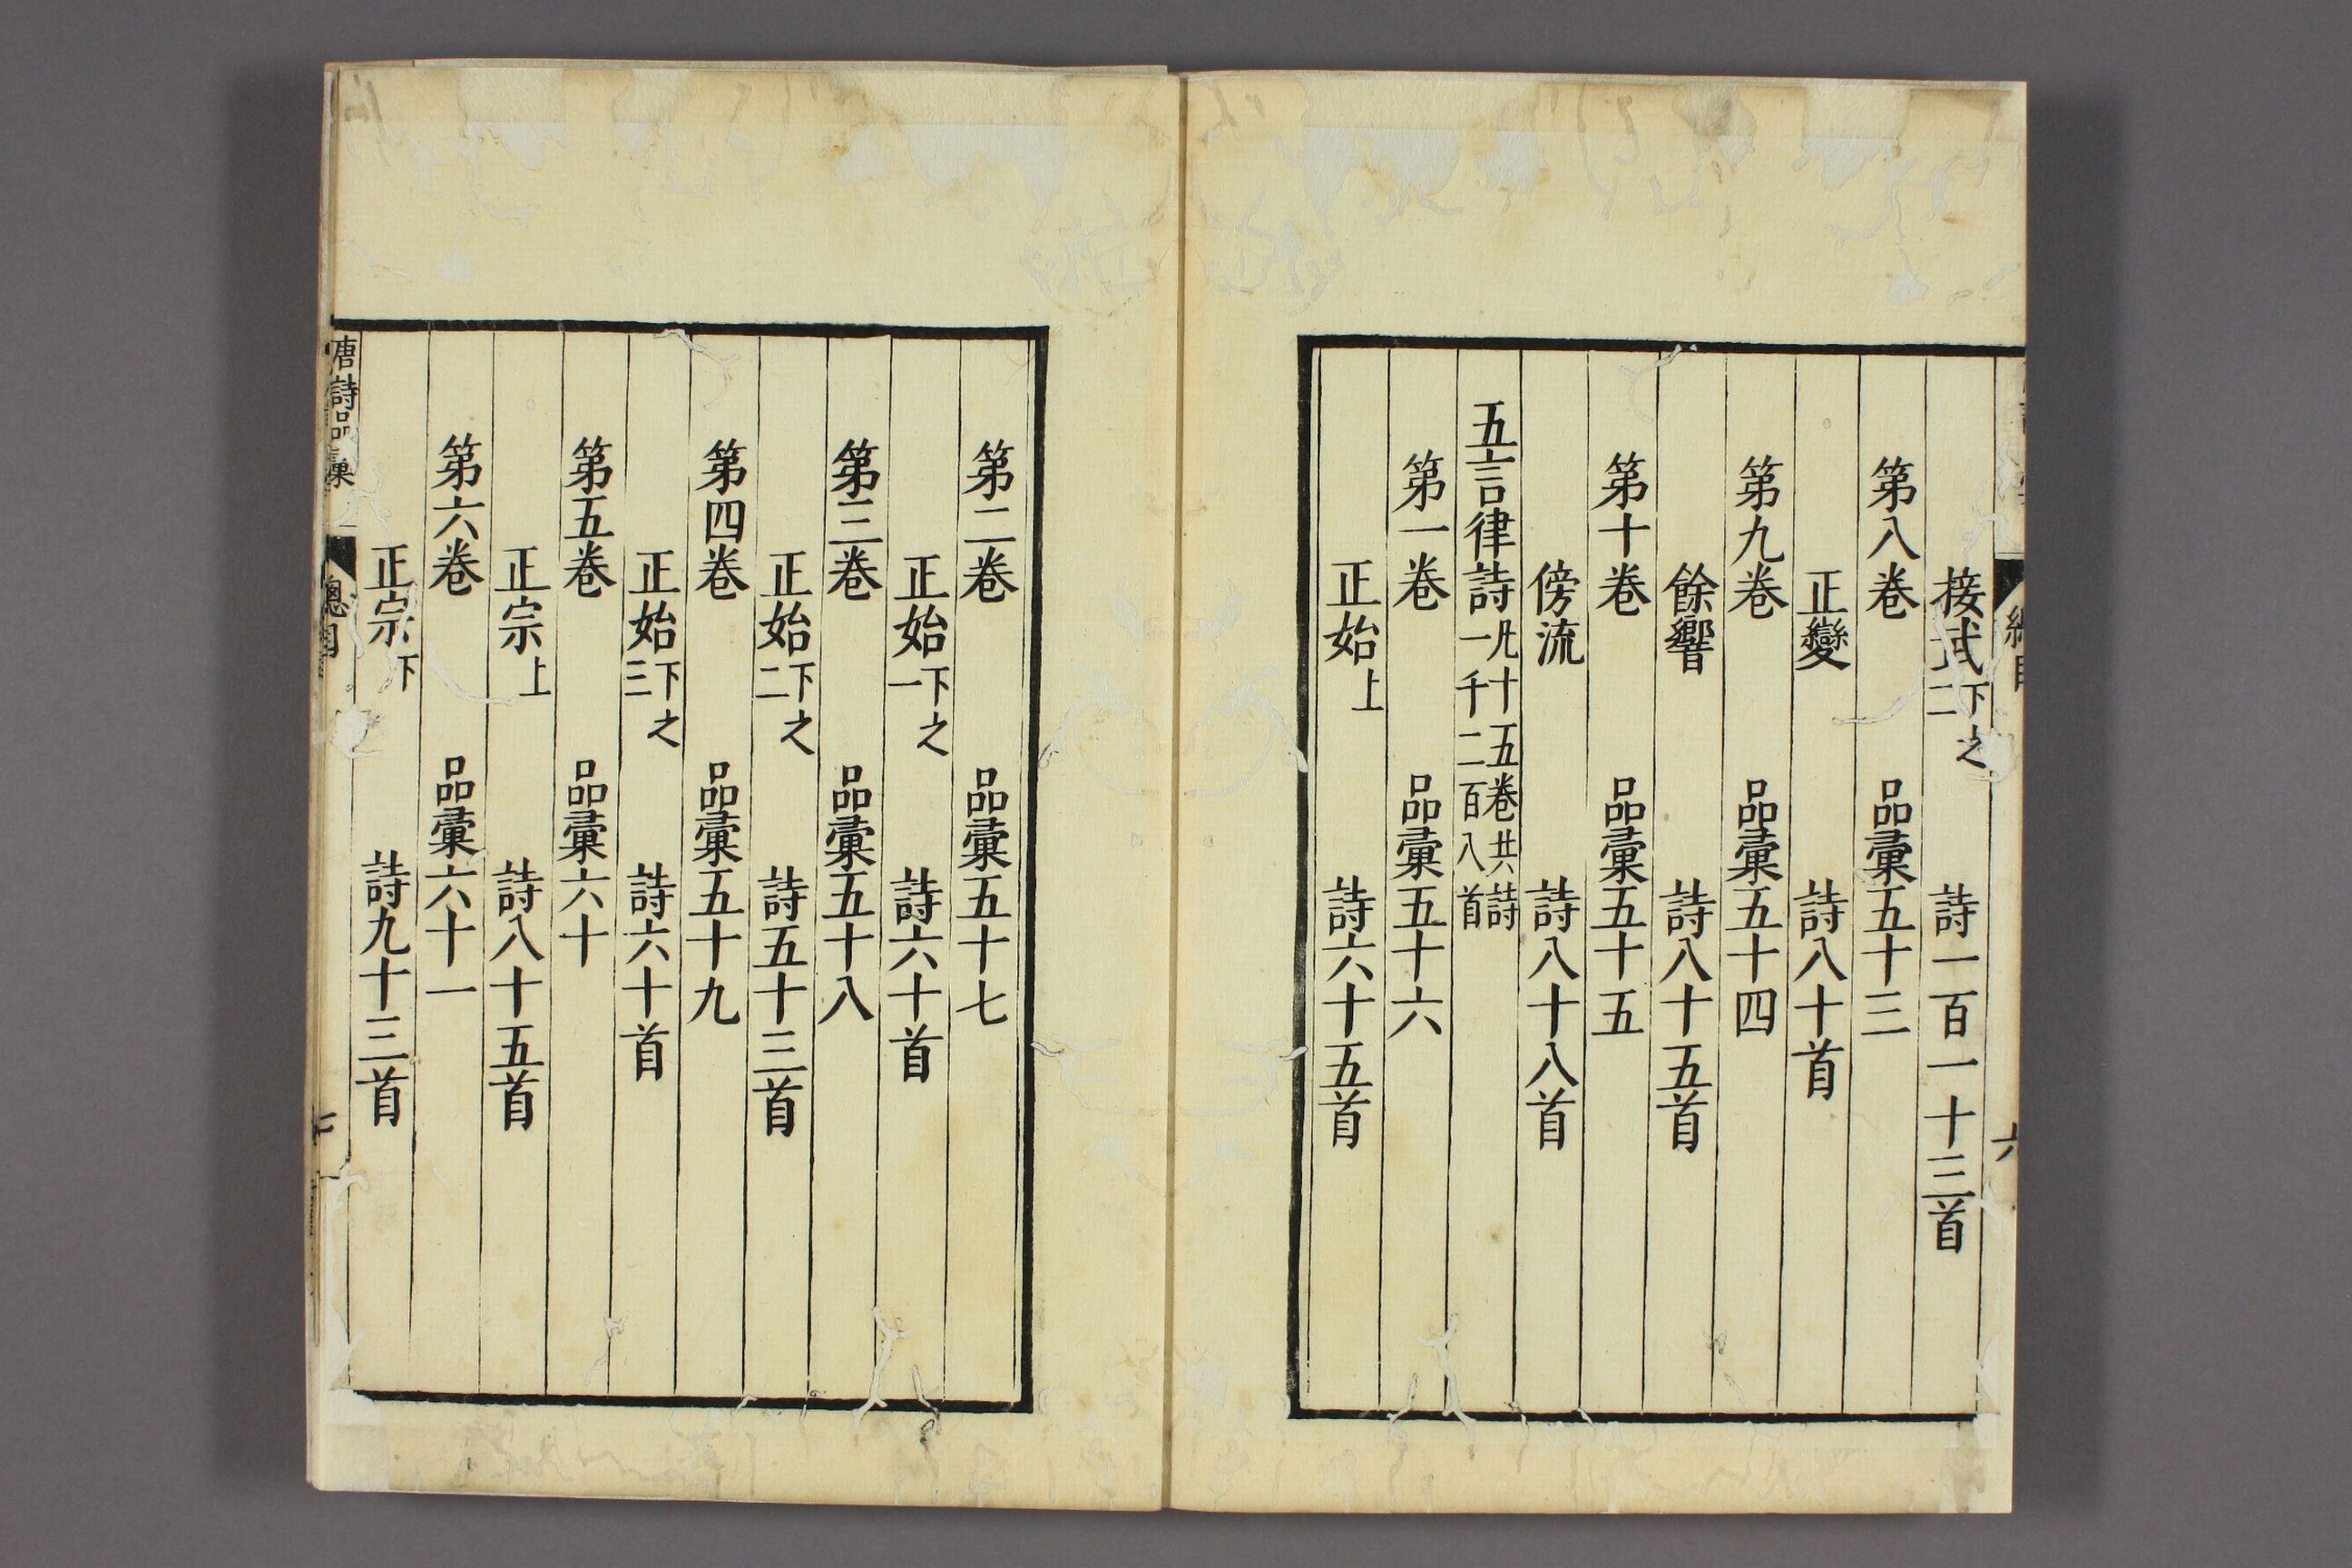 總目
六
接武下之二 詩一百一十三首
第八卷 品彙五十三
正變 詩八十首
第九卷 品彙五十四
餘響 詩八十五首
第十卷 品彙五十五
傍流 詩八十八首
五言律詩凡十五卷共詩一千二百八首
第一卷 品彙五十六
正始上 詩六十五首
第二卷 品彙五十七
正始下之一 詩六十首
第三卷 品彙五十八
正始下之二 詩五十三首
第四卷 品彙五十九
正始下之三 詩六十首
第五卷 品彙六十
正宗上 詩八十五首
第六卷 品彙六十一
正宗下 詩九十三首
唐詩品彙 總目 七